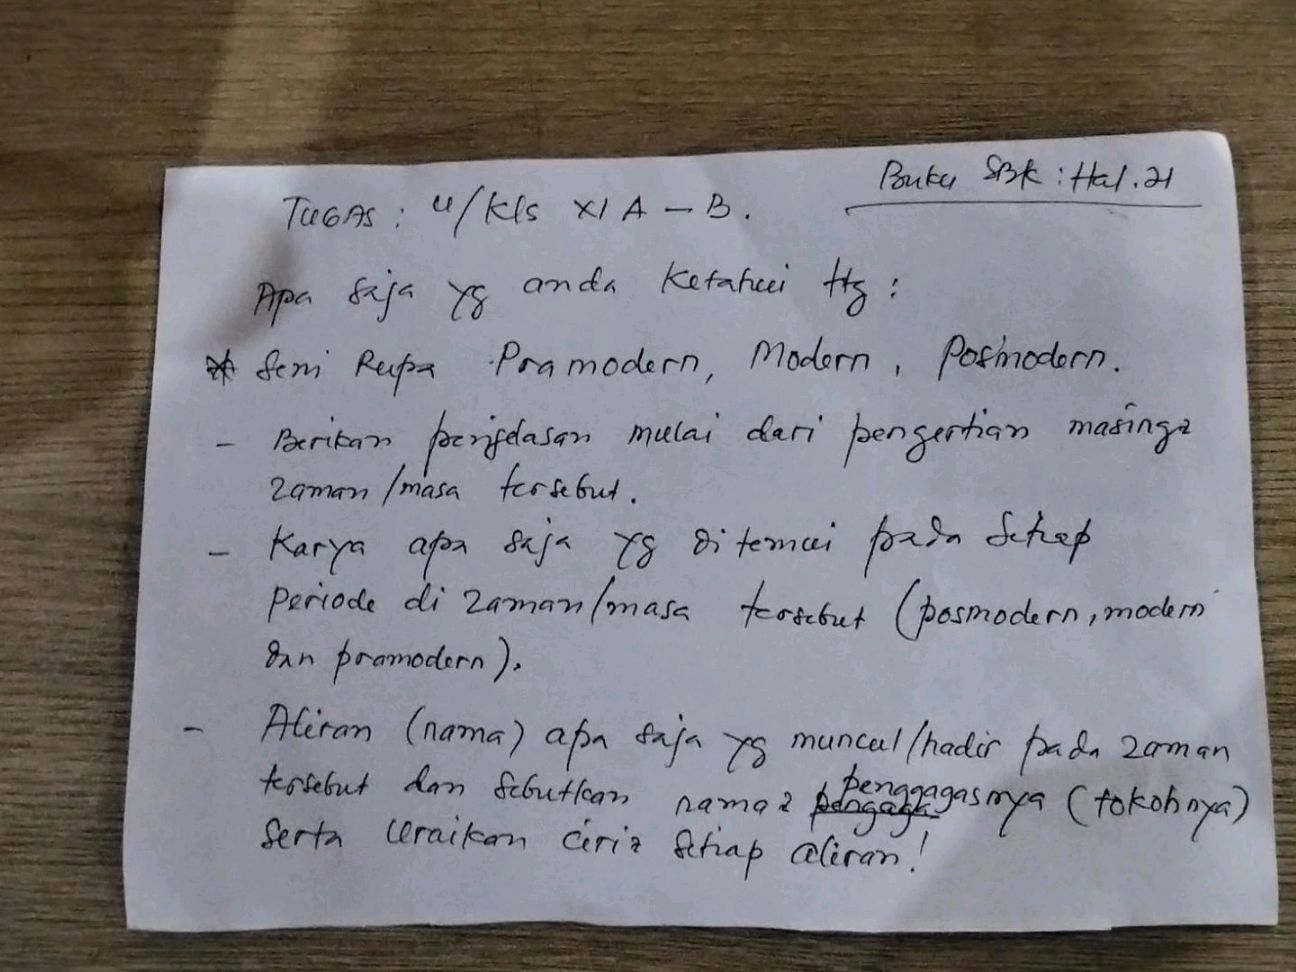 Buku SBK : Hal. 21
TUGAS : u/kls XI A - B.
Apa saja yg anda Ketahui ttg :
* Seni Rupa Pramodern, Modern, Posmodern.
- Berikan penjelasan mulai dari pengertian masing2
zaman/masa tersebut.
- Karya apa saja yg ditemui pada setiap
periode di zaman/masa tersebut (posmodern, modern
dan pramodern).
- Aliran (nama) apa saja yg muncul/hadir pada zaman
tersebut dan sebutkan nama2 penggagasnya (tokohnya)
serta uraikan ciri2 setiap aliran!